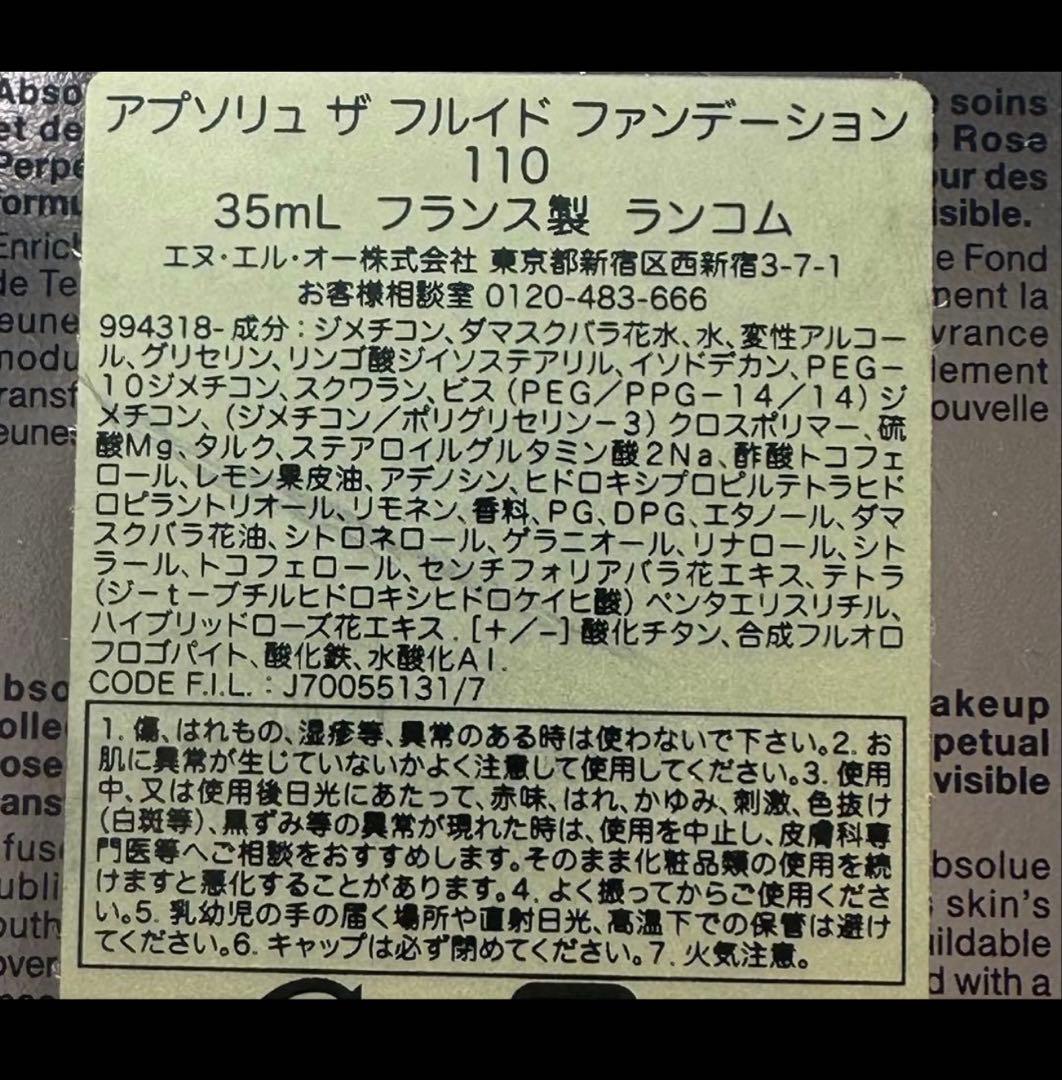 アプソリュ ザ フルイド ファンデーション
110
35mL フランス製 ランコム
エヌ・エル・オー株式会社 東京都新宿区西新宿3-7-1
お客様相談室 0120-483-666
994318- 成分 : ジメチコン、ダマスクバラ花水、水、変性アルコー
ル、グリセリン、リンゴ酸ジイソステアリル、イソドデカン、PEG-
10ジメチコン、スクワラン、ビス (PEG/PPG-14/14) ジ
メチコン、(ジメチコン/ポリグリセリン-3) クロスポリマー、硫
酸Mg、タルク、ステアロイルグルタミン酸2Na、酢酸トコフェ
ロール、レモン果皮油、アデノシン、ヒドロキシプロピルテトラヒド
ロピラントリオール、リモネン、香料、PG、DPG、エタノール、ダマ
スクバラ花油、シトロネロール、ゲラニオール、リナロール、シト
ラール、トコフェロール、センチフォリアバラ花エキス、テトラ
(ジ-t-ブチルヒドロキシヒドロケイヒ酸) ペンタエリスリチル、
ハイブリッドローズ花エキス . [+/-] 酸化チタン、合成フルオロ
フロゴパイト、酸化鉄、水酸化Al.
CODE F.I.L. : J70055131/7
1. 傷、はれもの、湿疹等、異常のある時は使わないで下さい。2. お
肌に異常が生じていないかよく注意して使用してください。3. 使用
中、又は使用後日光にあたって、赤味、はれ、かゆみ、刺激、色抜け
(白斑等)、黒ずみ等の異常が現れた時は、使用を中止し、皮膚科専
門医等へご相談をおすすめします。そのまま化粧品類の使用を続
けますと悪化することがあります。4. よく振ってからご使用くださ
い。5. 乳幼児の手の届く場所や直射日光、高温下での保管は避け
てください。6. キャップは必ず閉めてください。7. 火気注意。
Abso
et de
Perpe
formu
Enric
de Te
jeune
modu
transf
jeune
soins
Rose
our des
isible.
e Fond
ment la
vrance
lement
ouvelle
akeup
petual
visible
bsolue
skin's
uildable
d with a